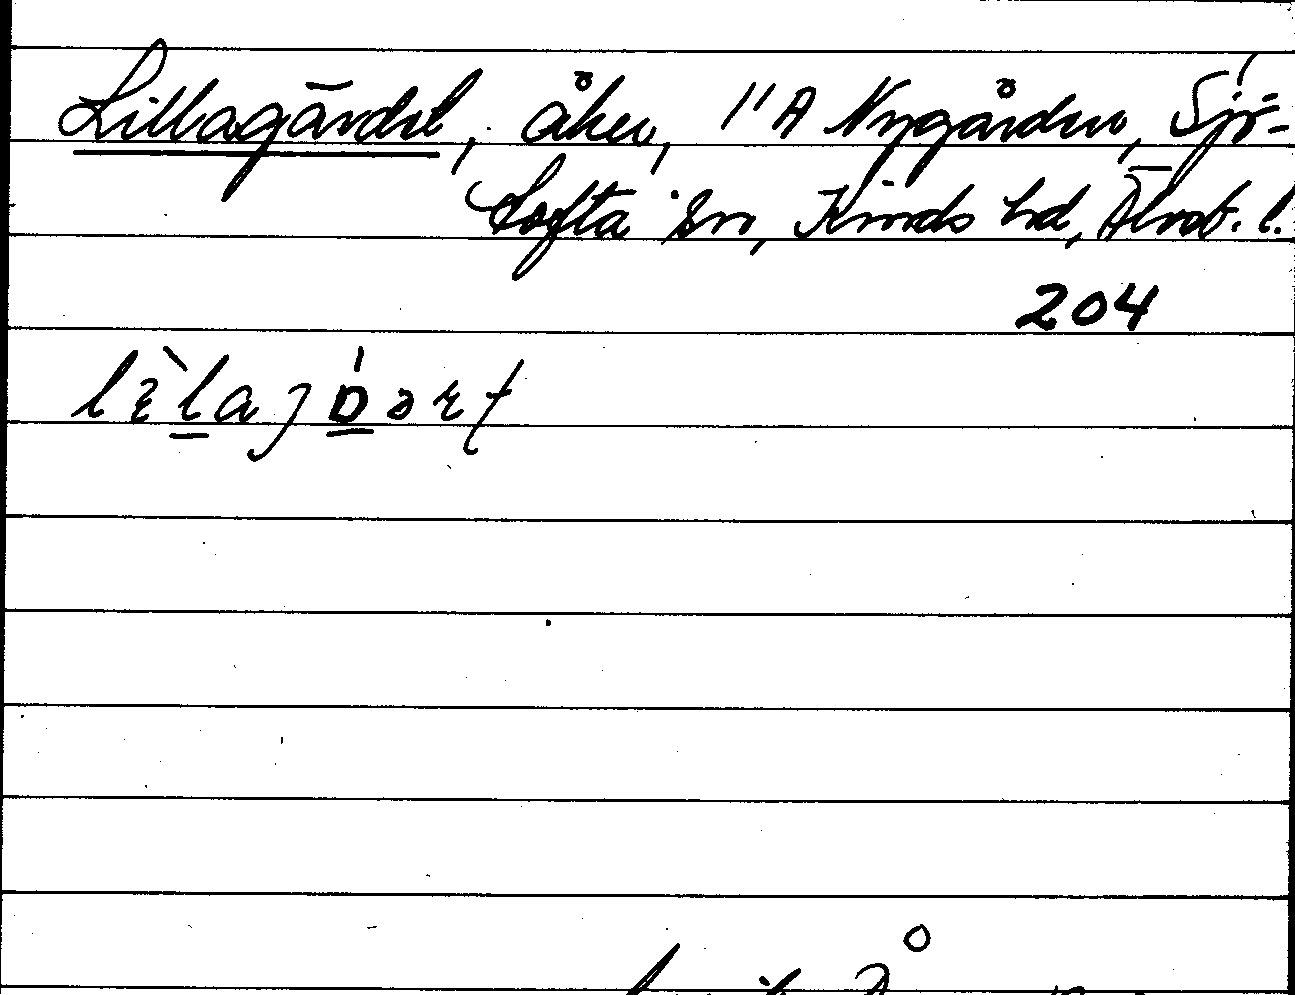 Lillagärdet, åker, 1"A Nygården, Sjö-
tofta sn, Kinds hd, Älvsb. l.
204